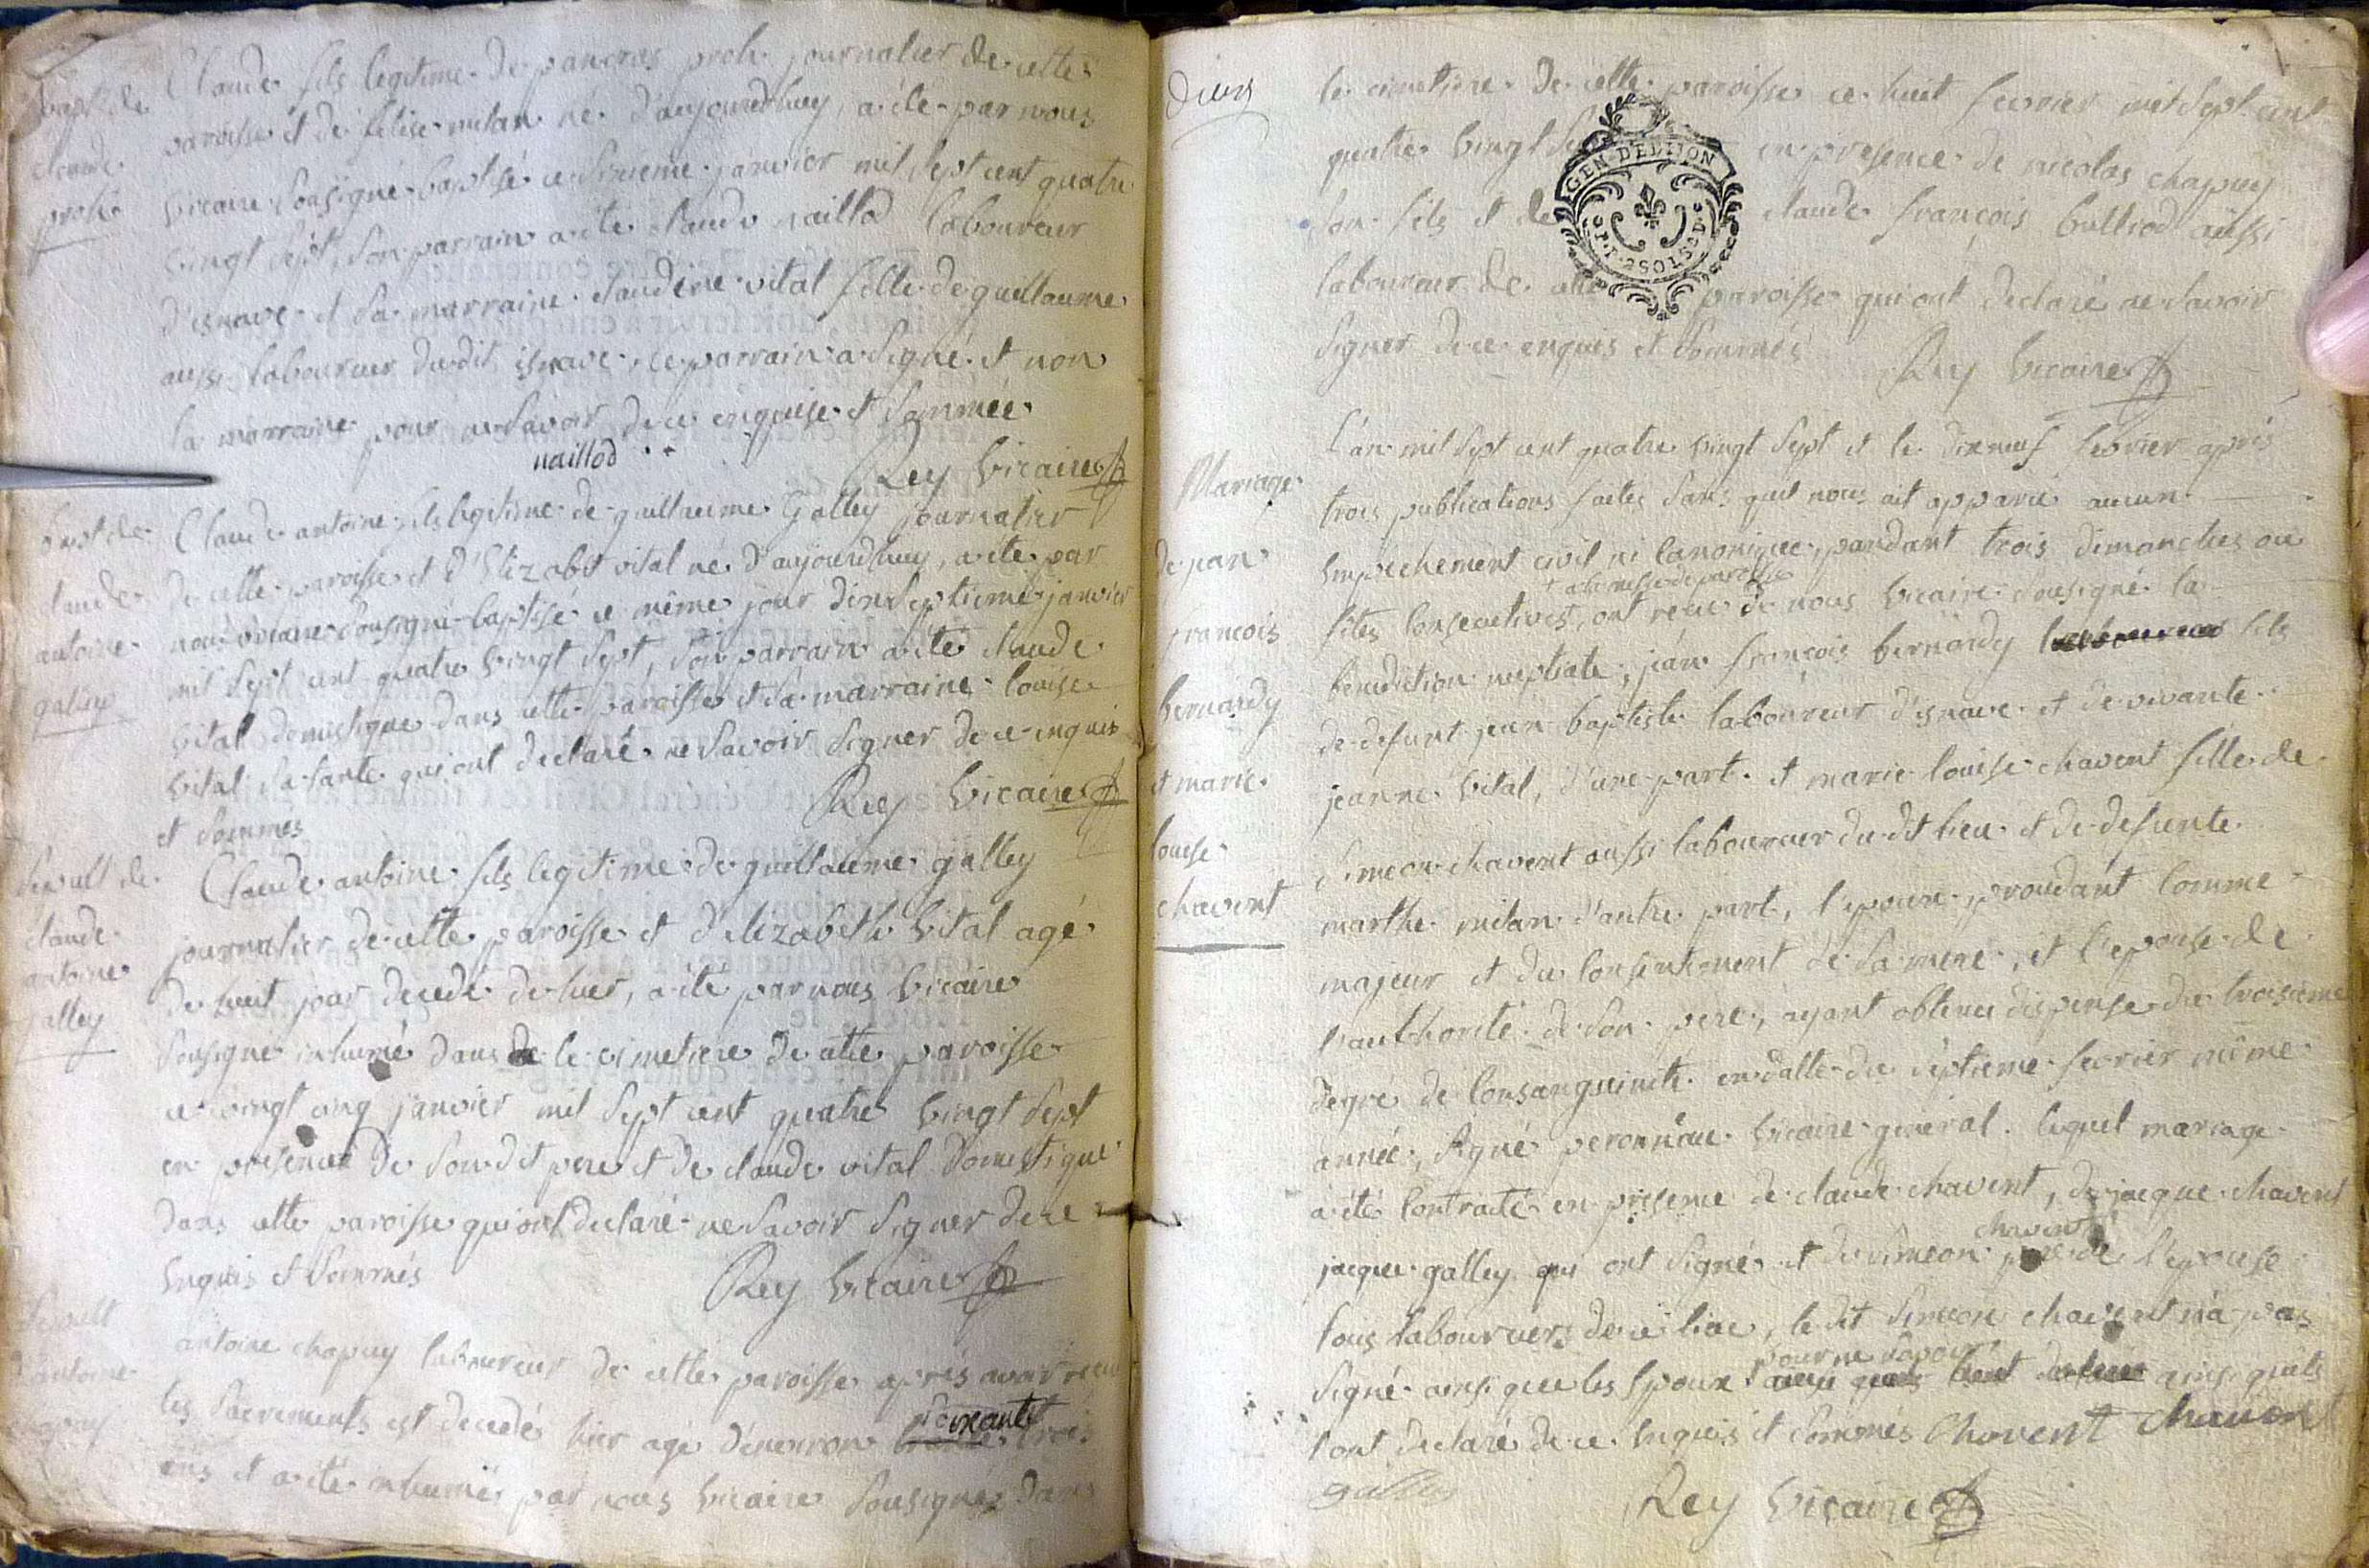 bapt. de
claude
proh
Claude fils legitime de pancras proh journalier de cette
paroisse et de felise milan né d'aujourdhuy, a été par nous
vicaire sousigné baptisé ce janvier mil sept cent quatre
vingt sept, son parrain a été claude naillod laboureur
d'isnave et sa marraine claudine vital fille de guillaume
aussi laboureur dudit isnave, le parrain a signé et non
la marraine pour ne savoir de ce enquise et sommée
naillod
Rey vicaire
bapt. de
claude
antoine
galley
Claude antoine fils legitime de guillaume Galley journalier
de cette paroisse et d'Elizabet vital né d'aujourdhuy, a été par
nous vicaire sousigné baptisé ce même jour dixseptieme janvier
mil sept cent quatre vingt sept, son parrain a été claude
vital domestique dans cette paroisse et sa marraine louise
vital sa tante qui ont declaré ne savoir signer de ce enquis
et sommes
Rey vicaire
sepult de
claude
antoine
galley
Claude antoine fils legitime de guillaume galley
journalier de cette paroisse et d'elizabeth vital agé
de huit jour decedé de hier, a été par nous vicaire
sousigné inhumé dans le cimetiere de cette paroisse
ce vingt cinq janvier mil sept cent quatre vingt sept
en presence de son dit pere et de claude vital domestique
dans cette paroisse qui ont declaré ne savoir signer de ce
enquis et sommés
Rey vicaire
sepult
d'antoine
chapuy
antoine chapuy laboureur de cette paroisse après avoir recu
les sacrements est decedé hier agé d'environ soixante trois
ans et a été inhumé par nous vicaire sousigné dans
le cimetiere de cette paroisse ce huit fevrier mil sept cent
quatre vingt en presence de nicolas chapuy
son fils et de claude françois bulliod aussi
laboureur de cette paroisse qui ont declaré ne savoir
signer de ce enquis et sommés
Rey vicaire
GEN. D'ELIJON
Mariage
de jean
francois
bernardy
et marie
louise
chavent
L'an mil sept cent quatre vingt sept et le dixneuf fevrier après
trois publications faites sans quil nous ait apparu aucun
empechement civil ni canonique, pandant trois dimanches ou
+ a la messe de paroisse
fêtes consecutives, ont recu de nous vicaire sousigné la
benediction nuptiale, jean francois bernardy fils
de defunt jean baptiste laboureur d'isnave et de vivante
jeanne vital, d'une part. et marie louise chavent fille de
simeon chavent aussi laboureur du dit lieu et de defunte
marthe milan d'autre part, l'epoux procedant comme
majeur et du consentement de sa mere, et l'epouse de
l'authorité de son pere, ayant obtenu dispense du troisieme
degré de consanguinité en datte du septieme fevrier même
année, signé peronneau vicaire général. lequel mariage
a été contracté en presence de claude chavent, de jacque chavent
jacque galley qui ont signé et de simeon chavent pere de l'epouse
tous laboureurs de ce lieu, le dit simeon chavent n'a pas
signé ainsi que les epoux pour ne savoir ainsi quils
l'ont declaré de ce enquis et sommés Chavent chavent
galley
Rey vicaire